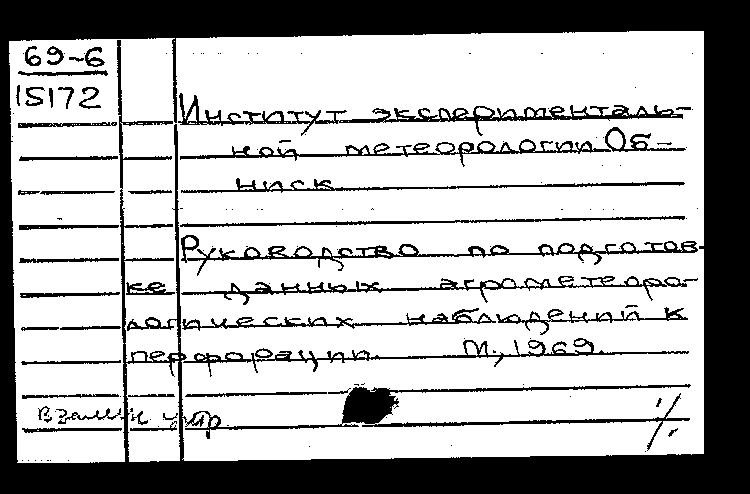 69-6
15172
Институт эксперименталь-
ной метеорологии Об-
нинск
Руководство по подготов-
ке данных агрометеоро-
логических наблюдений к
перфорации. М., 1969.